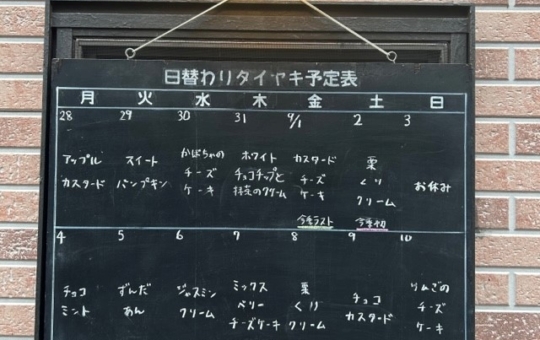 日替わりタイヤキ予定表
月 火 水 木 金 土 日
28 29 30 31 9/1 2 3
アップル スイート かぼちゃの ホワイト カスタード 栗
カスタード パンプキン チーズ チョコチップと チーズ くり お休み
ケーキ 抹茶のクリーム ケーキ クリーム
今季ラスト 今季初
4 5 6 7 8 9 10
チョコ ずんだ ジャスミン ミックス 栗 チョコ りんごの
ミント あん クリーム ベリー くり カスタード チーズ
チーズケーキ クリーム ケーキ